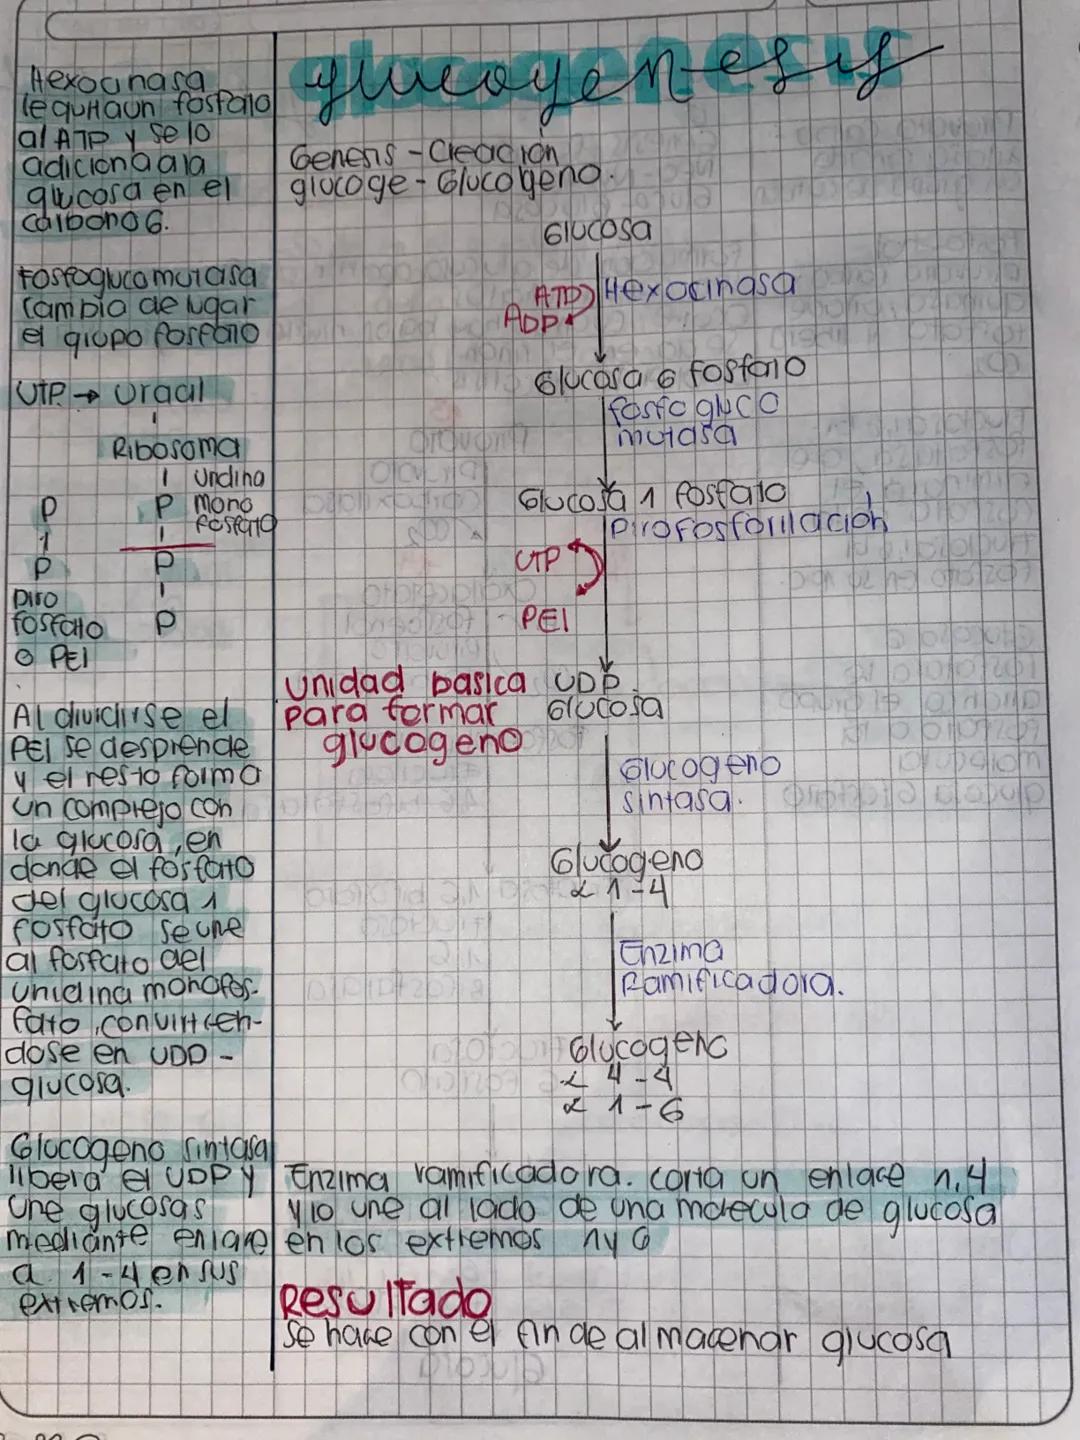 glucogenesis
Hexocinasa
le quita un fosfato
al ATP y se lo
adiciona a la
glucosa en el
carbono 6.
Fosfoglucomutasa
cambia de lugar
el grupo fosfato
UTP → Uracil
Ribosoma
Uridina
P P mono
fosfato
P P
Piro
fosfato P
o PEI
Al dividirse el
PEI se desprende
y el resto forma
un complejo con
la glucosa, en
donde el fosfato
del glucosa 1
fosfato se une
al fosfato del
uridina monofos-
fato, convirtien-
dose en UDP -
glucosa.
Glucogeno sintasa
libera el UDP y
une glucosas
mediante enlace
a 1-4 en sus
extremos.
Genesis - Creación
glucoge - Glucogeno.
Glucosa
ATP Hexocinasa
ADP
Glucosa 6 fosfato
fosfo gluco
mutasa
Glucosa 1 fosfato
Pirofosforilación
UTP
PEI
Unidad basica UDP
para formar Glucosa
glucogeno
Glucogeno
sintasa.
Glucogeno
α 1-4
Enzima
Ramificadora.
Glucogeno
α 4-4
α 1-6
Enzima ramificadora. corta un enlace n,4
y lo une al lado de una molecula de glucosa
en los extremos n y 6
Resultado
Se hace con el fin de almacenar glucosa